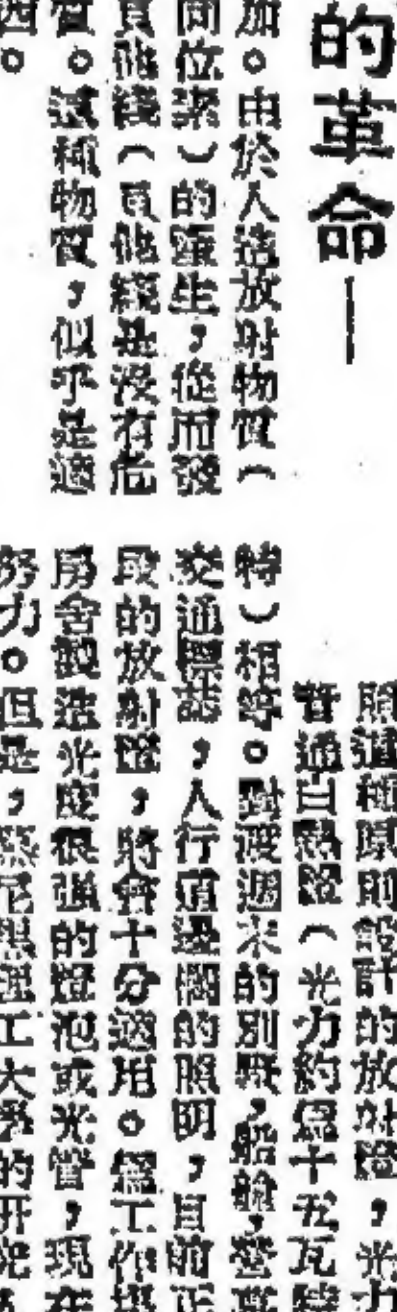 的革命—
加。由於人造放射物質（
同位素）的誕生，從而發
其他綫（其他綫是沒有危
質。這種物質，似乎是適
照這種原則設計的放射燈，光力
普通白熱燈（光力約為十五瓦特
特）相等。對渡週末的別墅，船艙，登
交通標誌，人行道邊欄的照明，目前正
段的放射燈，將會十分適用。為工作場
房舍製造光度很強的燈泡或光管，現在
努力。但是，慕尼黑理工大學的研究